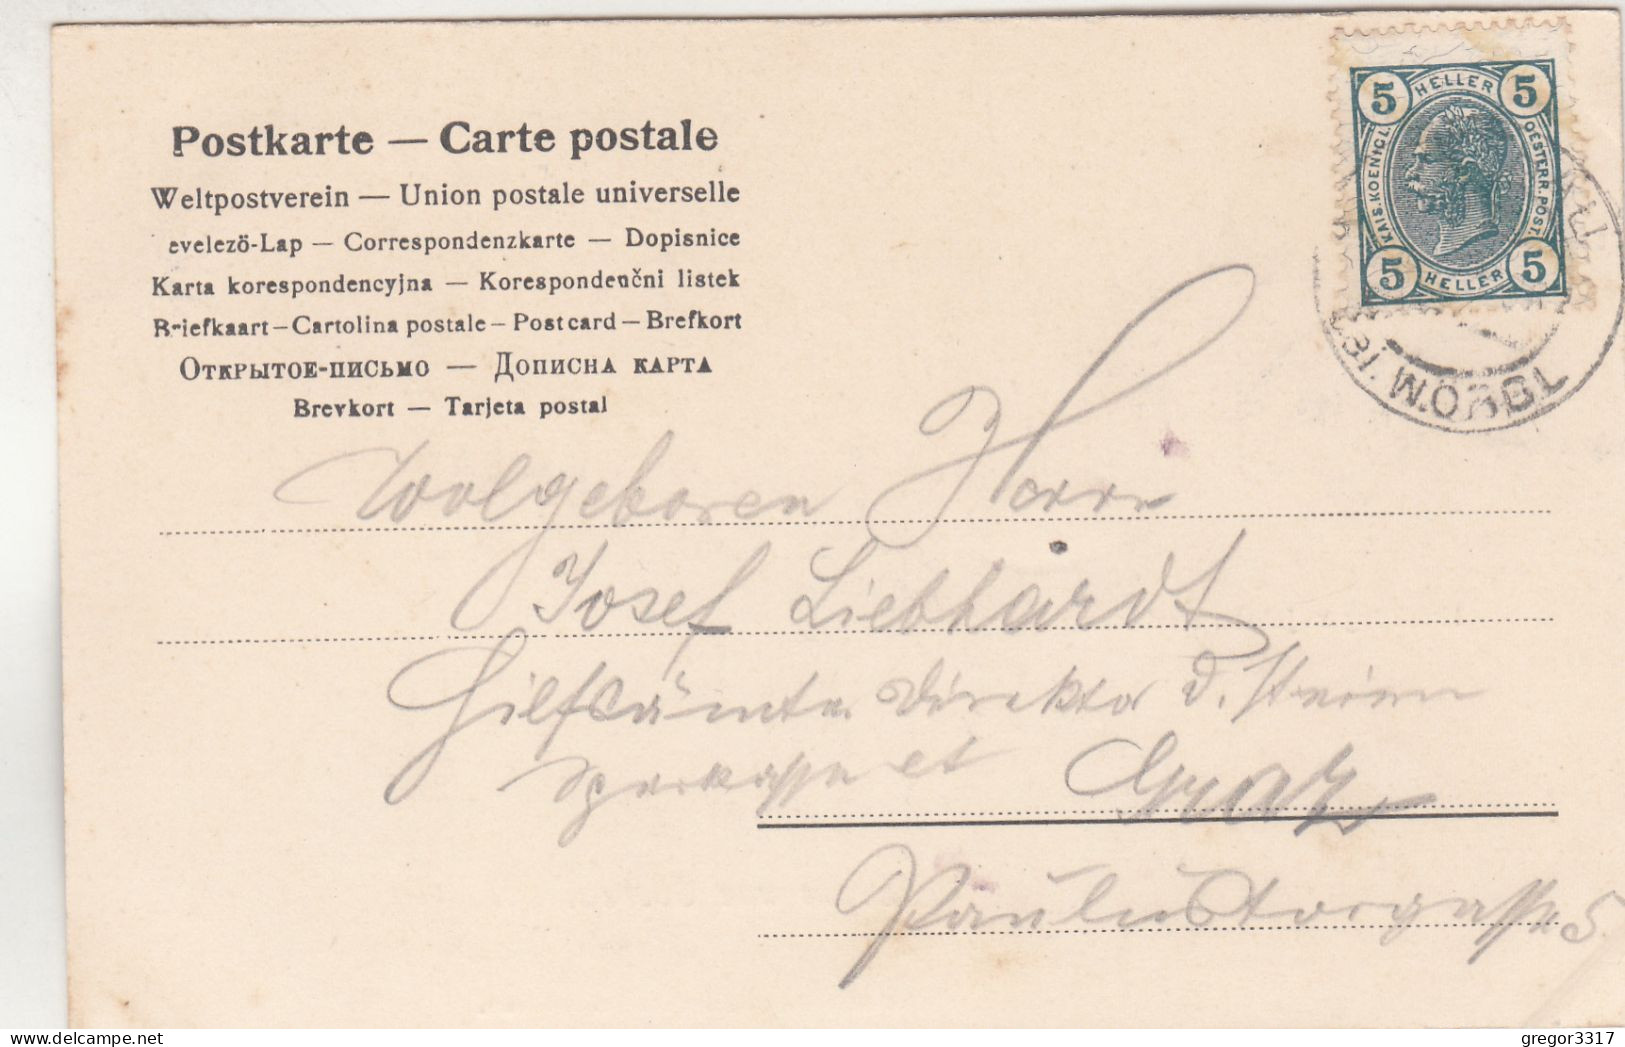 Postkarte — Carte postale
Weltpostverein — Union postale universelle
evelezö-Lap — Correspondenzkarte — Dopisnice
Karta korespondencyjna — Korespondenčni listek
Briefkaart — Cartolina postale — Post card — Brefkort
Открытое-письмо — Дописна карта
Brevkort — Tarjeta postal
5 HELLER 5
KAIS. KOENIGL. OESTERR. POST.
5 HELLER 5
WÖRGL
Wolgeboren Herrn
Josef Liebhardt
Hilfsämter Direktor d. Steierm
Sparkasse et Graz
Paulustorgasse 5
gregor3317